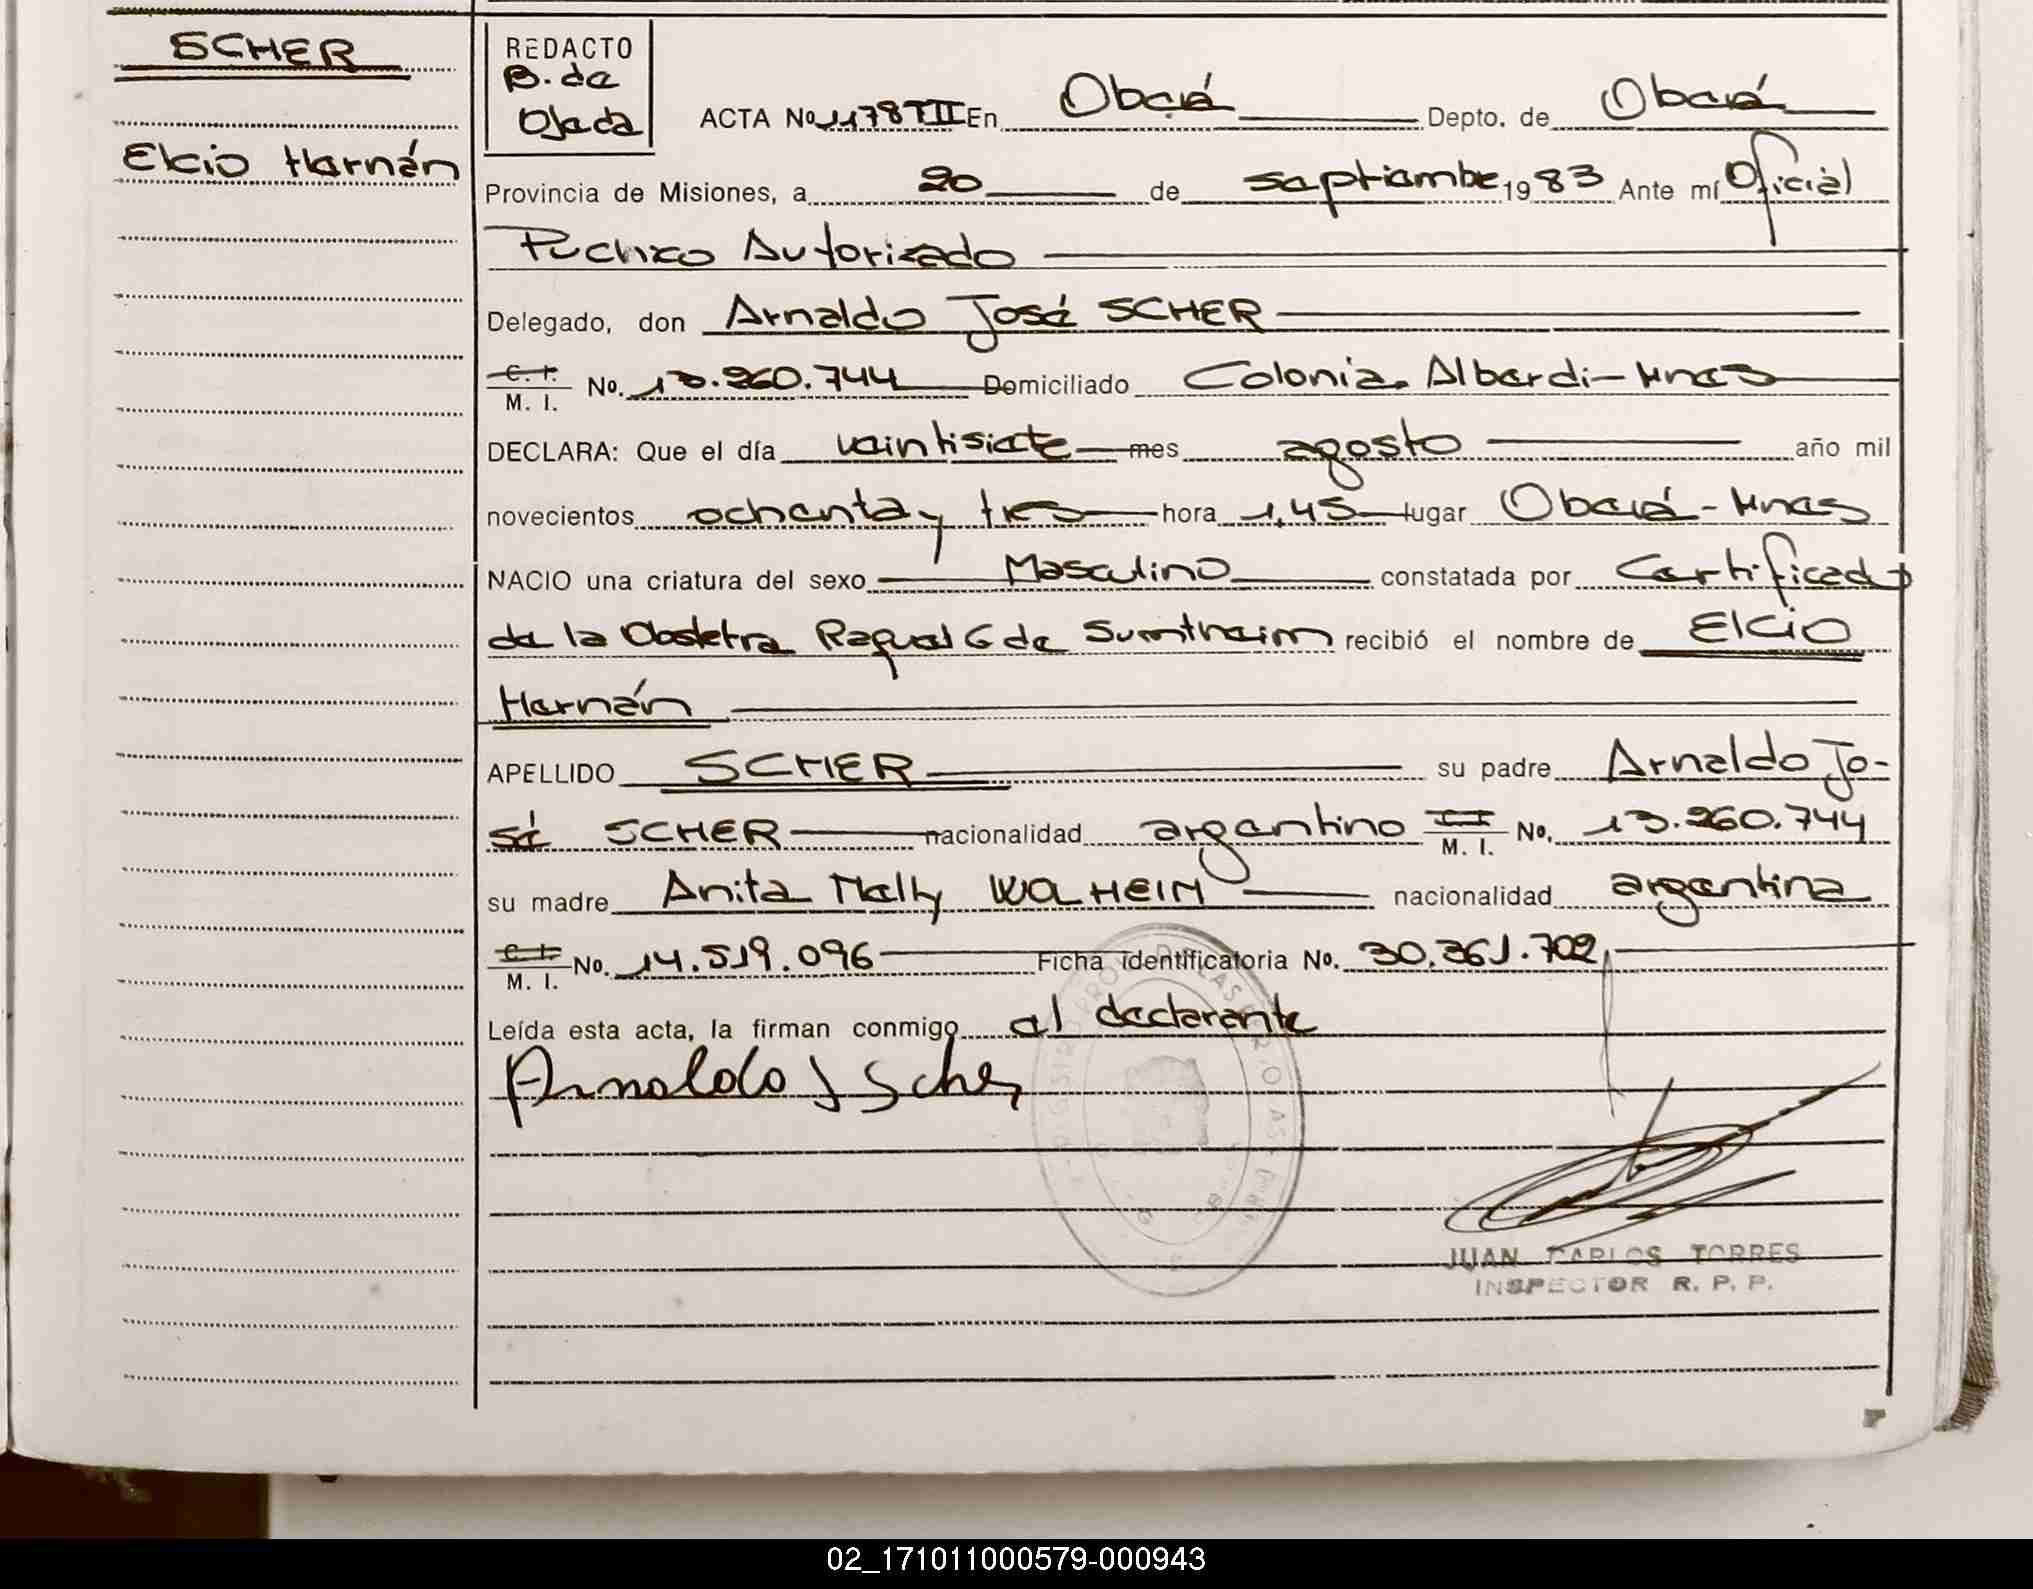 SCHER
Elcio Hernán
REDACTO
B. de
Ojeda
ACTA No. 1178 TII En Oberá Depto. de Oberá
Provincia de Misiones, a 20 de septiembre 1983 Ante mí Oficial
Público Autorizado
Delegado, don Arnaldo José SCHER
C. I.
M. I. No. 13.260.744 Domiciliado Colonia Alberdi-Mnes
DECLARA: Que el día veintisiete mes agosto año mil
novecientos ochenta y tres hora 1,45 lugar Oberá-Mnes
NACIO una criatura del sexo Masculino constatada por Certificado
de la Obstetra Raquel G de recibió el nombre de Elcio
Hernán
APELLIDO SCHER su padre Arnaldo Jo-
sé SCHER nacionalidad argentino C. I.
M. I. No. 13.260.744
su madre Anita Nelly WOLHEIM nacionalidad argentina
C. I.
M. I. No. 14.519.096 Ficha identificatoria No. 30.361.702
Leída esta acta, la firman conmigo el declarante
Arnaldo J Scher
JUAN CARLOS TORRES
INSPECTOR R. P. P.
02_171011000579-000943